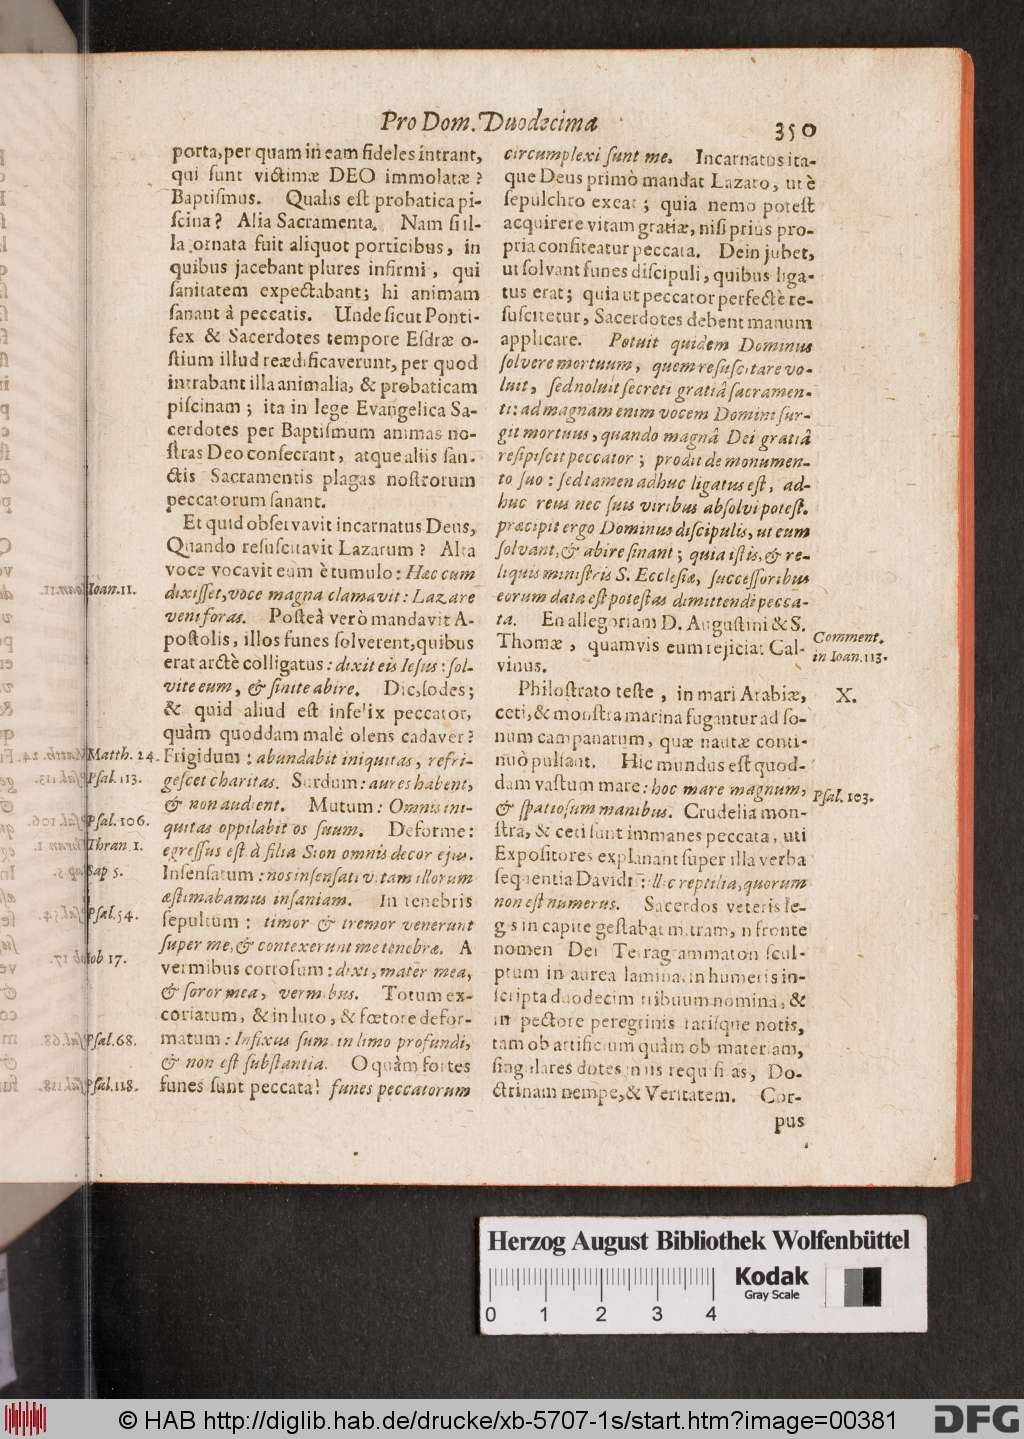 Pro Dom. Duodecima
350
porta, per quam in eam fideles intrant,
qui sunt victimæ DEO immolatæ?
Baptismus. Qualis est probatica pi-
scina? Alia Sacramenta. Nam si il-
la ornata fuit aliquot porticibus, in
quibus jacebant plures infirmi, qui
sanitatem expectabant; hi animam
sanant à peccatis. Unde sicut Ponti-
fex & Sacerdotes tempore Esdræ o-
stium illud reædificaverunt, per quod
intrabant illa animalia, & probaticam
piscinam; ita in lege Evangelica Sa-
cerdotes per Baptismum animas no-
stras Deo consecrant, atque aliis san-
ctis Sacramentis plagas nostrorum
peccatorum sanant.
Et quid observavit incarnatus Deus,
Quando resuscitavit Lazarum? Alta
voce vocavit eum è tumulo: Hæc cum
Ioan.11.
dixisset, voce magna clamavit: Lazare
veni foras. Posteà verò mandavit A-
postolis, illos funes solverent, quibus
erat arctè colligatus: dixit eis Iesus: sol-
vite eum, & sinite abire. Dic, sodes;
& quid aliud est infelix peccator,
quàm quoddam malè olens cadaver?
Matth. 24.
Frigidum: abundabit iniquitas, refri-
Psal. 113.
gescet charitas. Surdum: aures habent,
& non audient. Mutum: Omnis ini-
Psal. 106.
quitas oppilabit os suum. Deforme:
Thran. 1.
egressus est à filia Sion omnis decor ejus.
Sap 5.
Insensatum: nos insensati vitam illorum
æstimabamus insaniam. In tenebris
Psal. 54.
sepultum: timor & tremor venerunt
super me, & contexerunt me tenebræ. A
Iob 17.
vermibus corrosum: dixi, mater mea,
& soror mea, vermibus. Totum ex-
coriatum, & in luto, & fœtore defor-
Psal. 68.
matum: Infixus sum in limo profundi,
& non est substantia. O quàm fortes
Psal. 118.
funes sunt peccata! funes peccatorum
circumplexi sunt me. Incarnatus ita-
que Deus primò mandat Lazaro, ut è
sepulchro exeat; quia nemo potest
acquirere vitam gratiæ, nisi prius pro-
pria confiteatur peccata. Dein jubet,
ut solvant funes discipuli, quibus liga-
tus erat; quia ut peccator perfectè re-
suscitetur, Sacerdotes debent manum
applicare. Potuit quidem Dominus
solvere mortuum, quem resuscitare vo-
luit, sed noluit secreti gratiâ sacramen-
ti: ad magnam enim vocem Domini sur-
git mortuus, quando magnâ Dei gratiâ
resipiscit peccator; prodit de monumen-
to suo: sed tamen adhuc ligatus est, ad-
huc reus nec suis viribus absolvi potest.
præcipit ergo Dominus discipulis, ut eum
solvant, & abire sinant; quia istis, & re-
liquis ministris S. Ecclesiæ, successoribus
eorum data est potestas dimittendi pecca-
ta. En allegoriam D. Augustini & S.
Comment.
in Ioan. 113.
Thomæ, quamvis eum rejiciat Cal-
vinus.
X.
Philostrato teste, in mari Arabiæ,
ceti, & monstra marina fugantur ad so-
num campanarum, quæ nautæ conti-
nuò pulsant. Hic mundus est quod-
dam vastum mare: hoc mare magnum,
Psal. 103.
& spatiosum manibus. Crudelia mon-
stra, & ceti sunt immanes peccata, uti
Expositores explanant super illa verba
sequentia Davidi: illic reptilia, quorum
non est numerus. Sacerdos veteris le-
gis in capite gestabat mitram, in fronte
nomen Dei Tetragrammaton scul-
ptum in aurea lamina, in humeris in-
scripta duodecim tribuum nomina, &
in pectore peregrinis rarisque notis,
tam ob artificium quàm ob materiam,
singulares dotes in iis requisitas, Do-
ctrinam nempe, & Veritatem. Cor-
pus
Herzog August Bibliothek Wolfenbüttel
Kodak
Gray Scale
0 1 2 3 4
© HAB http://diglib.hab.de/drucke/xb-5707-1s/start.htm?image=00381
DFG